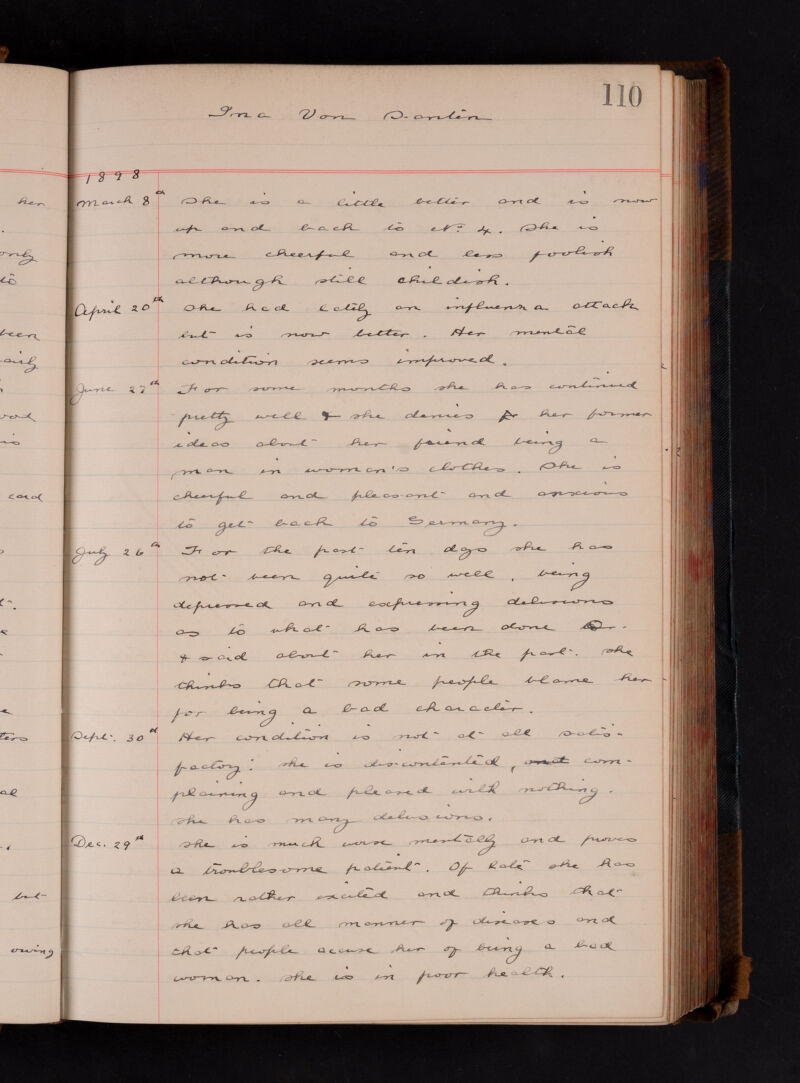 110
Ina Von
1898
March 8th She is a little better and is now
up and back to No. 4. She is
more cheerful and less foolish
although still childish.
April 20th She had lately an influenza attack
but is now better. Her mental
condition seems improved.
June 27th For some months she has continued
pretty well & she denies her former
ideas about her friend being a
man in woman's clothes. She is
cheerful and pleasant and anxious
to get back to Germany.
July 26th For the past ten days she has
not been quite so well, being
depressed and expressing delusions
as to what has been done
& said about her in the past. She
thinks that some people blame her
for being a bad character.
Sept. 30th Her condition is not at all satis-
factory: she is discontented, com-
plaining and pleased with nothing.
She has many delusions.
Dec. 29th She is much worse mentally and proves
a troublesome patient. Of late she has
been rather excited and thinks that
she has all manner of diseases and
that people accuse her of being a bad
woman. She is in poor health.
her
only
to
been
is
card
al
but
owing